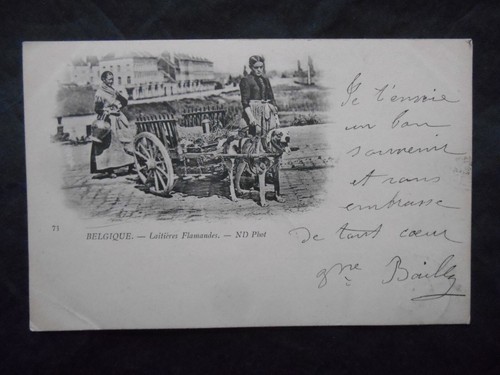 Je t'envoie
un bon
souvenir
et vous
embrasse
De tout cœur
71
BELGIQUE. — Laitières Flamandes. — ND Phot